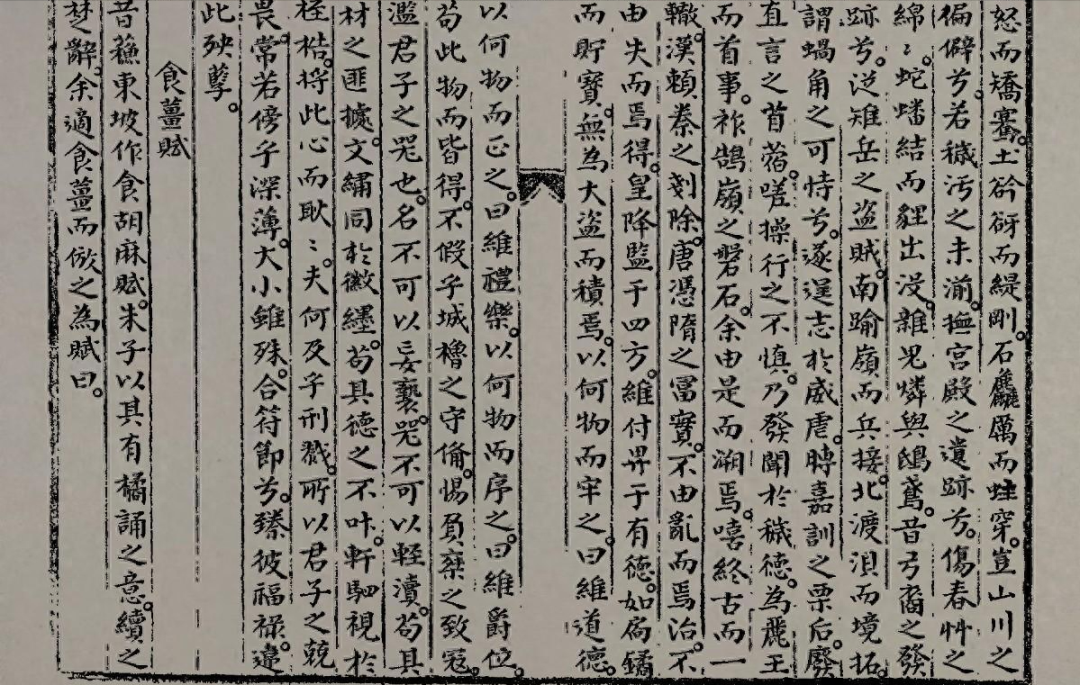 怒而矯騫。土谽谺而緹剛。石麤厲而蛀穿。豈山川之
偏僻兮。若穢汚之未湔。撫宮殿之遺跡兮。傷春艸之
綿〻。蛇蟠結而貍出沒。雜鬼燐與鴟鳶。昔弓裔之發
跡兮。從雉岳之盜賊。南踰嶺而兵接。北渡浿而境拓。
謂蝸角之可恃兮。遂逞志於威虐。時嘉訓之栗后。廢
直言之首蓿。嗟操行之不愼。乃發聞於穢德。為麗王
而首事。祚鵠嶺之磐石。余由是而溯焉。嘻終古而一
轍。漢賴秦之剗除。唐憑隋之富實。不由亂而焉治。不
由失而焉得。皇降監于四方。維付畀于有德。如扃鐍
而貯寶。無為大盜而積焉。以何物而牢之。曰維道德。
以何物而正之。曰維禮樂。以何物而序之。曰維爵位。
苟此物而皆得。不假乎城櫓之守備。惕負乘之致寇。
濫君子之器也。名不可以妄褻。器不可以輕瀆。苟具
材之匪據。文繡同於徽纆。苟具德之不叶。軒駟視於
桎梏。捋此心而耿〻。夫何及乎刑戮。所以君子之兢
畏。常若傍乎深薄。大小雖殊。合符節兮。臻彼福祿。違
此殃孼。
食薑賦
昔蘓東坡作食胡麻賦。朱子以其有橘誦之意。續之
楚辭。余適食薑而倣之為賦。曰。